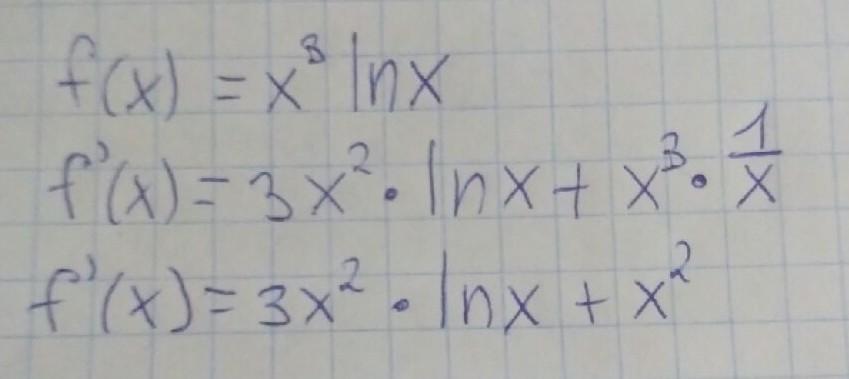 f(x) = x³ lnx
f'(x) = 3x² · lnx + x³ · 1/x
f'(x) = 3x² · lnx + x²